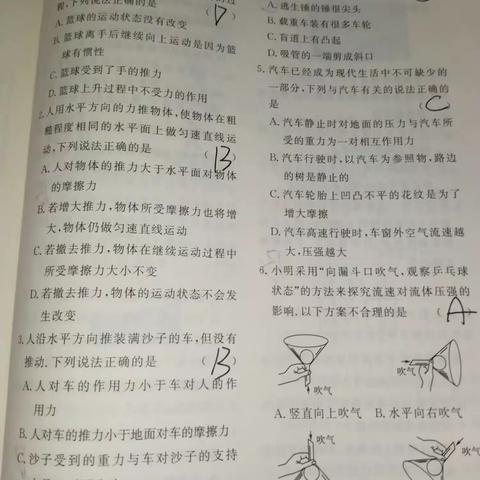 程,下列说法正确的是 ( D )
A. 篮球的运动状态没有改变
B. 篮球离手后继续向上运动是因为篮
球有惯性
C. 篮球受到了手的推力
D. 篮球上升过程中不受力的作用
2. 人用水平方向的力推物体,使物体在粗
糙程度相同的水平面上做匀速直线运
动,下列说法正确的是 ( B )
A. 人对物体的推力大于水平面对物体
的摩擦力
B. 若增大推力,物体所受摩擦力也将增
大,物体仍做匀速直线运动
C. 若撤去推力,物体在继续运动过程中
所受摩擦力大小不变
D. 若撤去推力,物体的运动状态不会发
生改变
3. 人沿水平方向推装满沙子的车,但没有
推动.下列说法正确的是 ( B )
A. 人对车的作用力小于车对人的作
用力
B. 人对车的推力小于地面对车的摩擦力
C. 沙子受到的重力与车对沙子的支持
A. 逃生锤的锤很尖头
B. 载重车装有很多车轮
C. 盲道上有凸起
D. 吸管的一端剪成斜口
5. 汽车已经成为现代生活中不可缺少的
一部分,下列与汽车有关的说法正确的
是 ( C )
A. 汽车静止时对地面的压力与汽车所
受的重力为一对相互作用力
B. 汽车行驶时,以汽车为参照物,路边
的树是静止的
C. 汽车轮胎上凹凸不平的花纹是为了
增大摩擦
D. 汽车高速行驶时,车窗外空气流速越
大,压强越大
6. 小明采用“向漏斗口吹气,观察乒乓球
状态”的方法来探究流速对流体压强的
影响.以下方案不合理的是 ( A )
吹气
吹气
A. 竖直向上吹气 B. 水平向右吹气
吹气
吹气